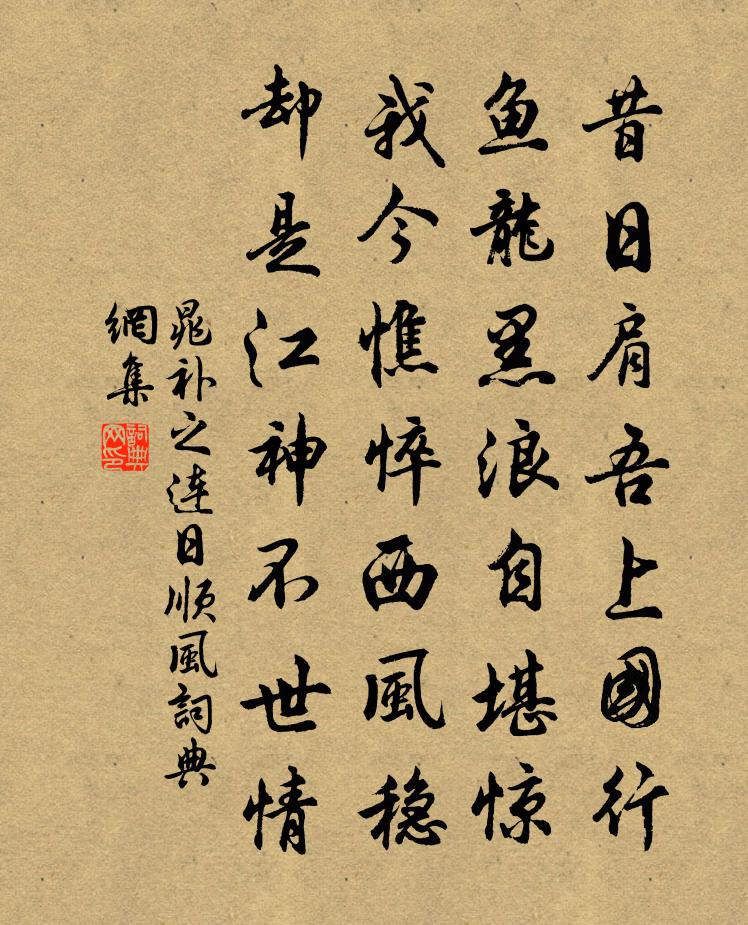 昔日肩吾上國行
鱼龍黑浪自堪惊
我今憔悴西風穏
却是江神不世情
晁补之连日順風詞典
網集
詞典网印